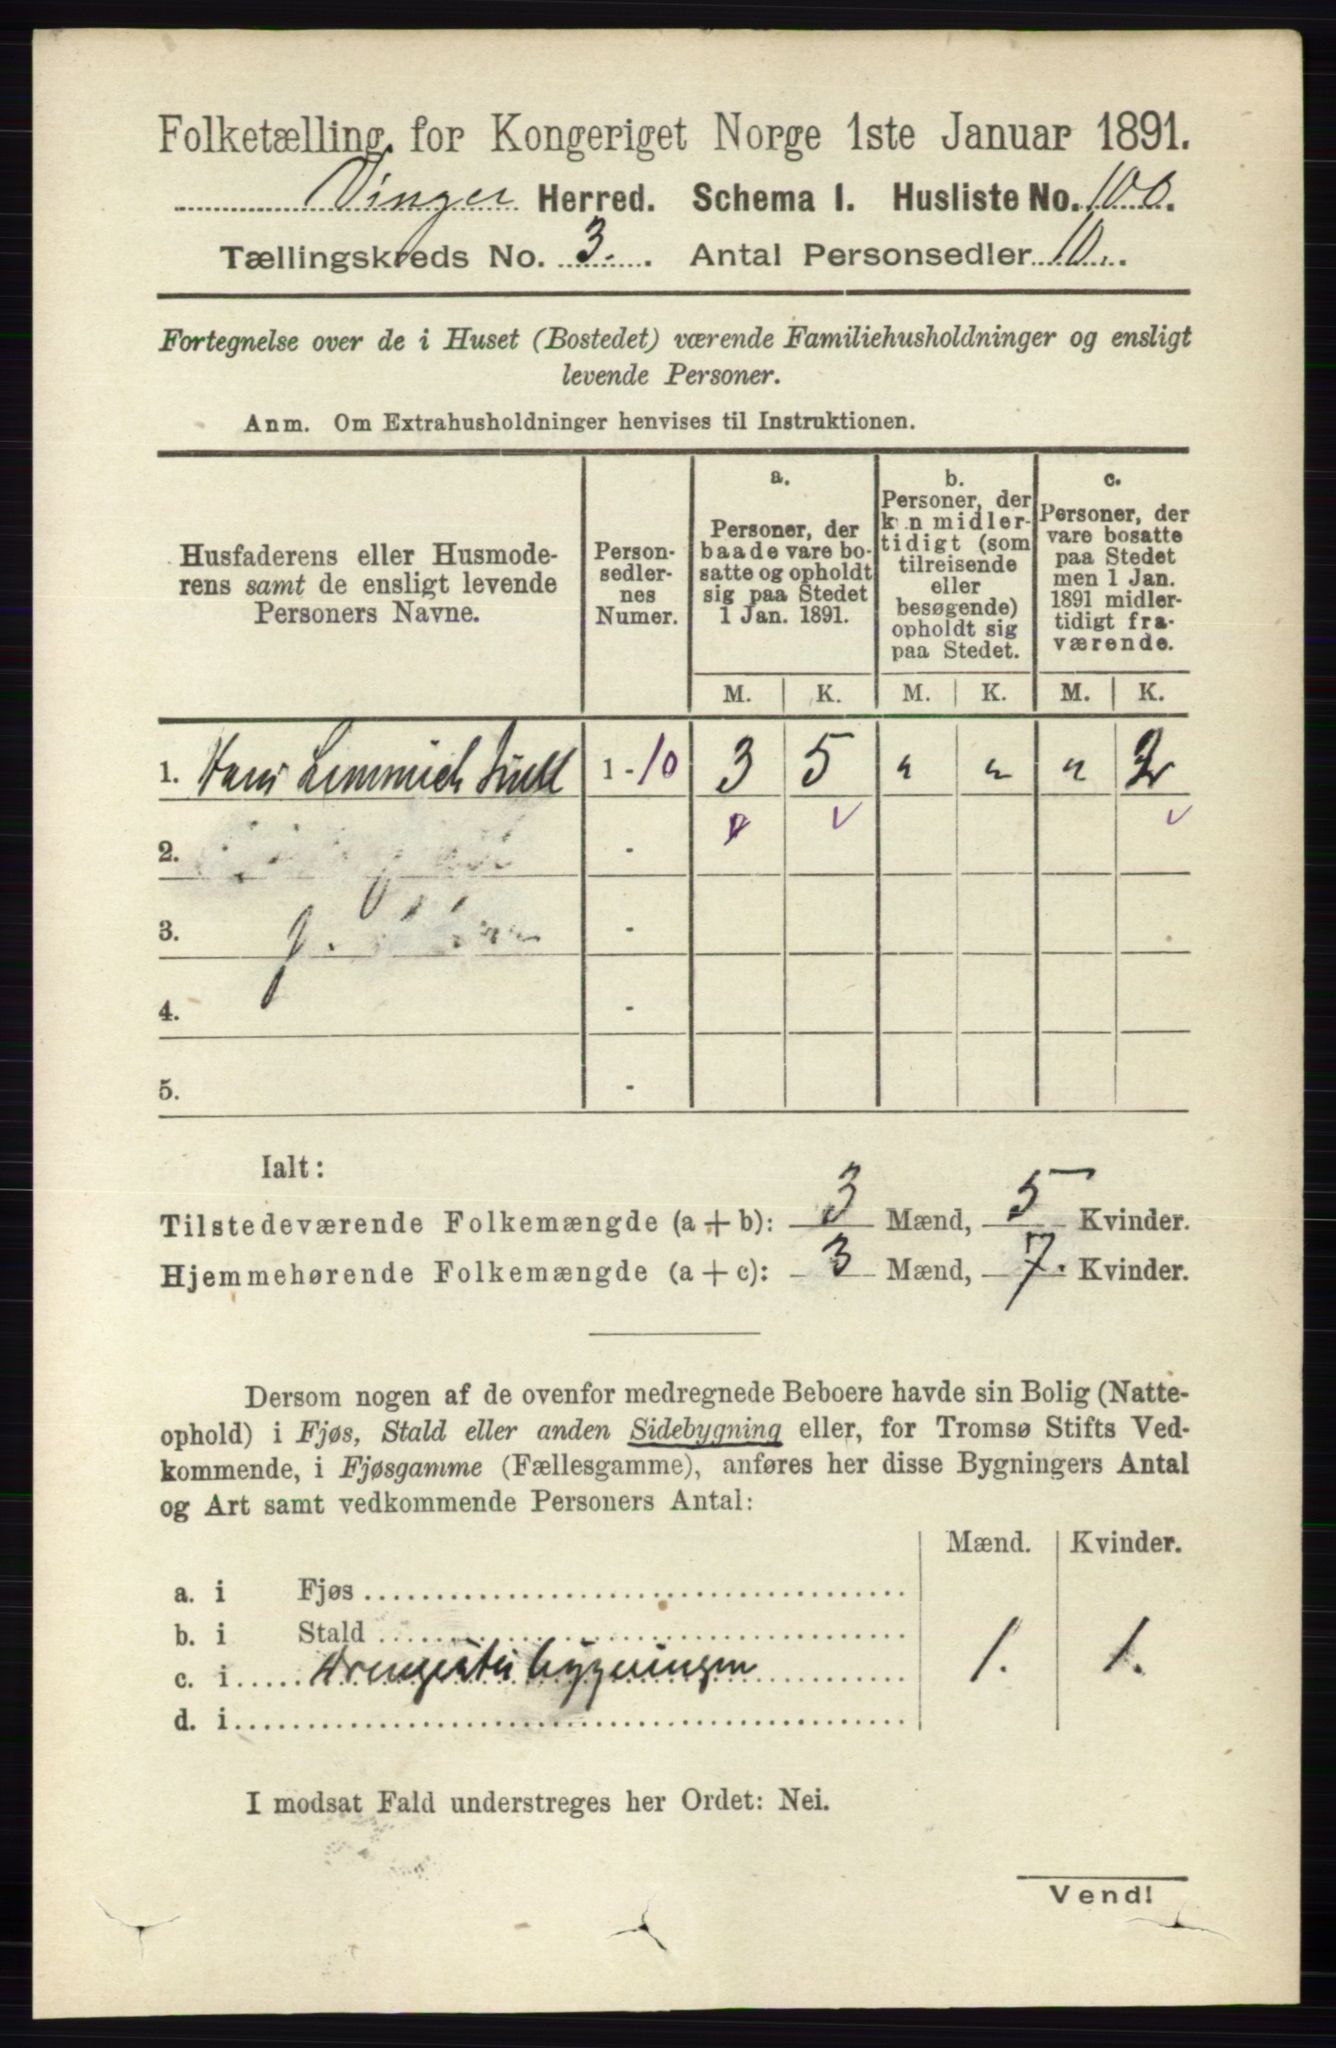 Folketælling for Kongeriget Norge 1ste Januar 1891.
Vinger Herred. Schema I. Husliste No. 100.
Tællingskreds No. 3. Antal Personsedler 10.
Fortegnelse over de i Huset (Bostedet) værende Familiehusholdninger og ensligt
levende Personer.
Anm. Om Extrahusholdninger henvises til Instruktionen.
Husfaderens eller Husmode-
rens samt de ensligt levende
Personers Navne.
Person-
sedler-
nes
Numer.
a.
Personer, der
baade vare bo-
satte og opholdt
sig paa Stedet
1 Jan. 1891.
b.
Personer, der
kun midler-
tidigt (som
tilreisende
eller
besøgende)
opholdt sig
paa Stedet.
c.
Personer, der
vare bosatte
paa Stedet
men 1 Jan.
1891 midler-
tidigt fra-
værende.
M. K. M. K. M. K.
1. Hans Lemmich 1 - 10 3 5 " " " 2
2. -
3. -
4. -
5. -
Ialt:
Tilstedeværende Folkemængde (a + b): 3 Mænd, 5 Kvinder.
Hjemmehørende Folkemængde (a + c): 3 Mænd, 7. Kvinder.
Dersom nogen af de ovenfor medregnede Beboere havde sin Bolig (Natte-
ophold) i Fjøs, Stald eller anden Sidebygning eller, for Tromsø Stifts Ved-
kommende, i Fjøsgamme (Fællesgamme), anføres her disse Bygningers Antal
og Art samt vedkommende Personers Antal:
Mænd. Kvinder.
a. i Fjøs
b. i Stald
c. i bygningen 1. 1.
d. i
I modsat Fald understreges her Ordet: Nei.
Vend!